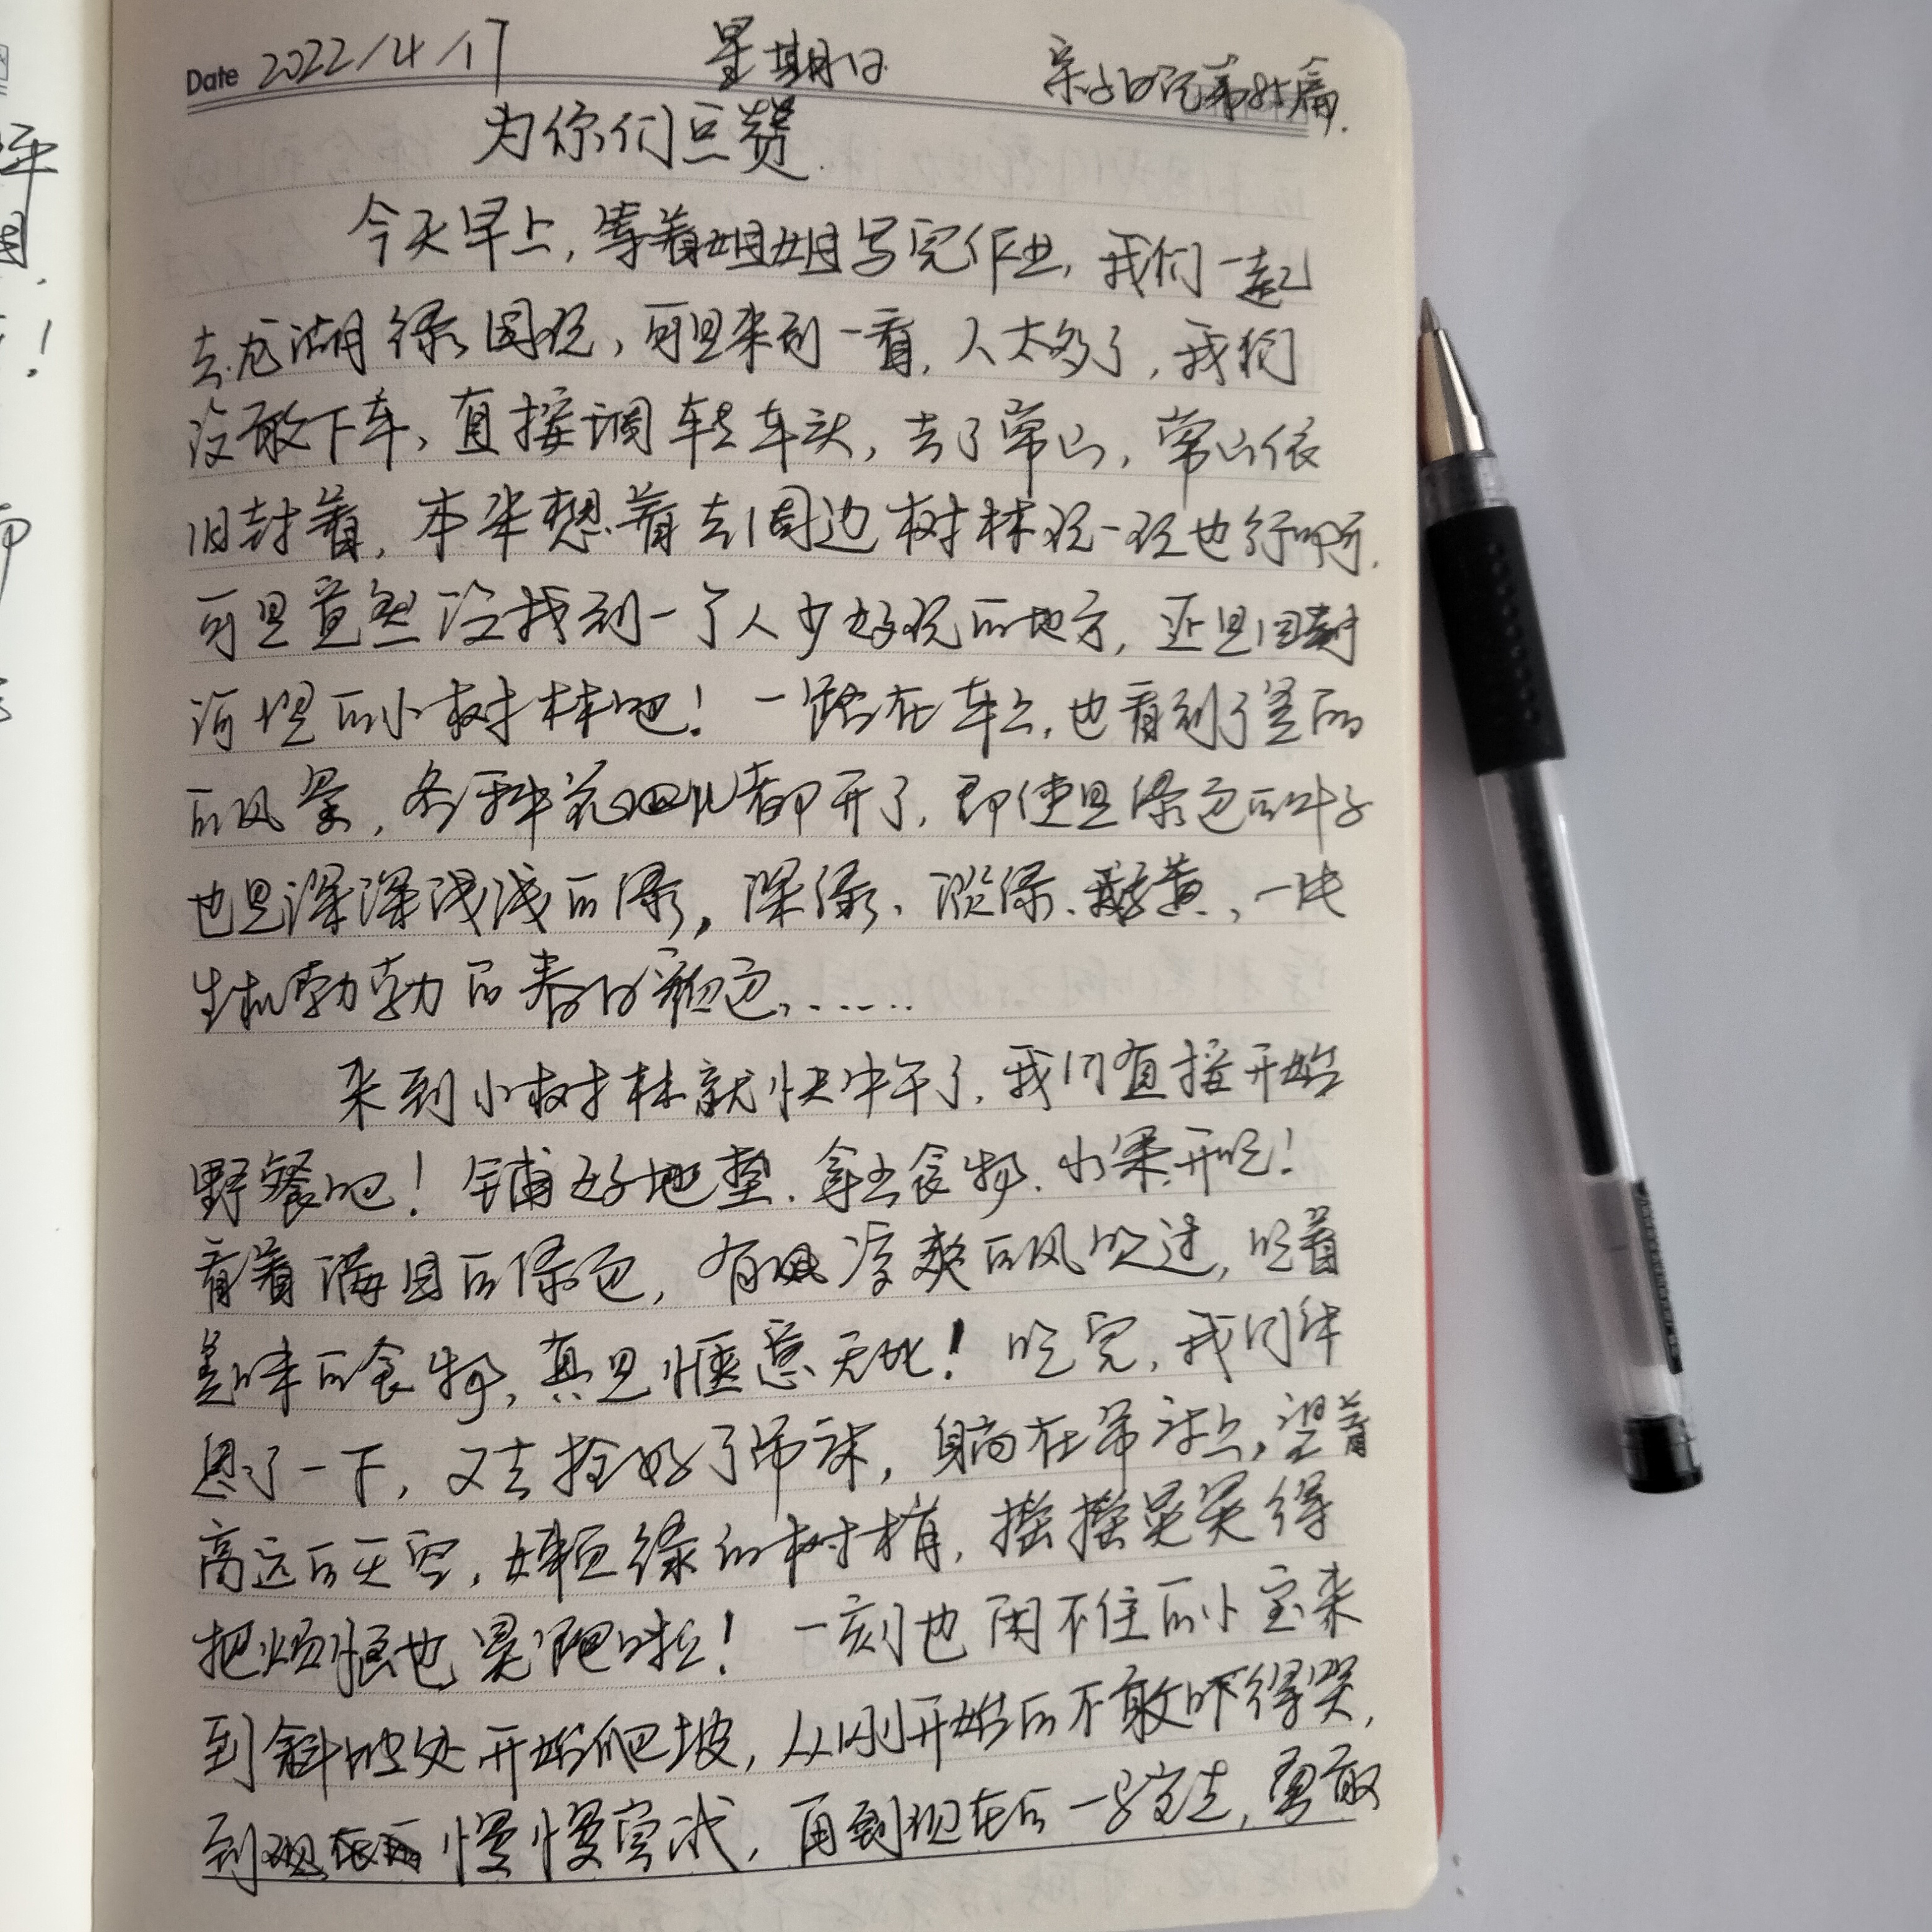 Date 2022/4/17 星期日 亲子日记第85篇.
为你们点赞.
今天早上,等着姐姐写完作业,我们一起
去龙湖绿园玩,可是来到一看,人太多了,我们
没敢下车,直接调转车头,去了常山,常山依
旧封着,本来想着去周边树林玩一玩也行啊.
可是竟然没找到一个人少好玩的地方,还是回
河堤的小树林吧!一路在车上,也看到了美丽
的风景,各种花儿都开了,即使是绿色的叶子
也是深深浅浅的绿,深绿、浅绿、黄、一片
生机勃勃的春日颜色,......
来到小树林就快中午了,我们直接开始
野餐吧!铺好地垫、拿出食物、水果,开吃!
看着满目的绿色,有凉爽的风吹过,吃着
美味的食物,真是惬意无比!吃完,我们休
息了一下,又去拴好了吊床,躺在吊床上,望着
高远的天空,嫩绿的树梢,摇摇晃晃得
把烦恼也晃跑啦!一刻也闲不住的小宝来
到斜坡处开始爬坡,从刚开始的不敢吓得哭,
到慢慢尝试,再到现在的一步步走,勇敢